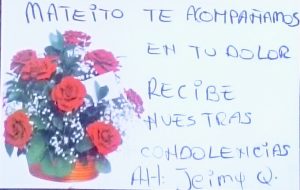 MATEITO TE ACOMPAÑAMOS
EN TU DOLOR
RECIBE
NUESTRAS
CONDOLENCIAS
Att: Jeimy Q.